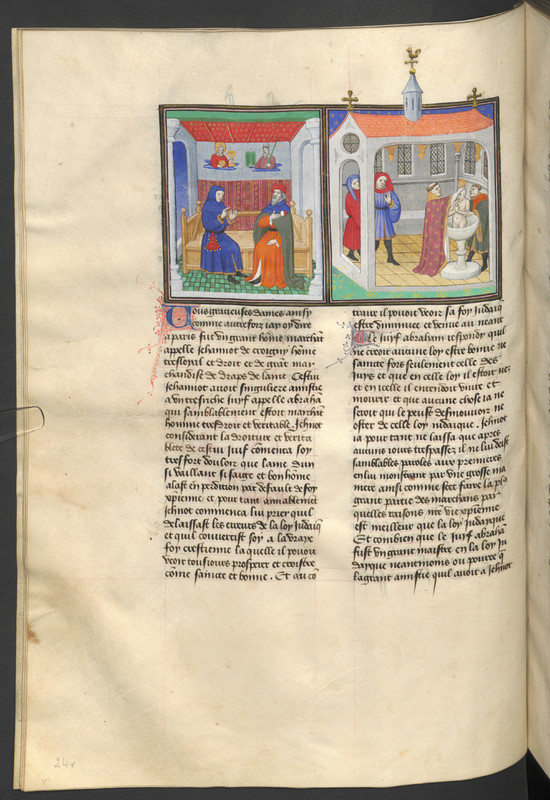 ous gracieuses dames ainsy
comme autrefoiz iay oy dire
a paris fut vn grant home marchāt
appelle Jehannot de
tresloyal et droit et de grāt mar
chandise de draps de laine Cestui
Jehannot auoit singuliere amistie
a vn tresriche Juyf appelle abrahā
qui semblablement estoit marchāt
homme tresdroit et veritable Jehnot
considerant la droiture et verita
blete de cestui Juif cōmenca soy
tresfort douloir que lame dun
si vaillant si saige et bon home
alast en perdition par default de foy
xpienne et pour tant amiablemēt
Jehnot commenca luy prier quil
delaissast les erreurs de la loy Judaiq̄
et quil conuertist soy a la vraye
foy crestienne laquelle il pouoit
veoir tousiours prosperer et croistre
cōme saincte et bonne . Et au cō
traire il pouoit veoir sa foy iudaiq̄
estre diminuee et venue au neant
Le Juyf abraham respondy quil
ne creoit aucune loy estre bonne ne
saincte fors seulement celle des
Juys et que en celle loy il estoit nez
et en icelle il entendoit viure et
mourir et que aucune chose ia ne
seroit qui le peust desmouuoir ne
oster de celle loy iudaique . Jehnot
ia pour tant ne laissa que apres
aucuns iours trespassez il ne luy deist
semblables paroles aux premieres
en luy monstrant par vne grosse ma
niere ainsi comme scet faire la pl9
grant partie des marchans par
quelles raisons nr̄e vie xpienne
est meilleur que la loy iudaique
Et combien que le Juyf abrahā
fust vn grant maistre en la loy iu
dayque neantmoins ou pource q̄
la grant amistie quil auoit a Jehnot
24v